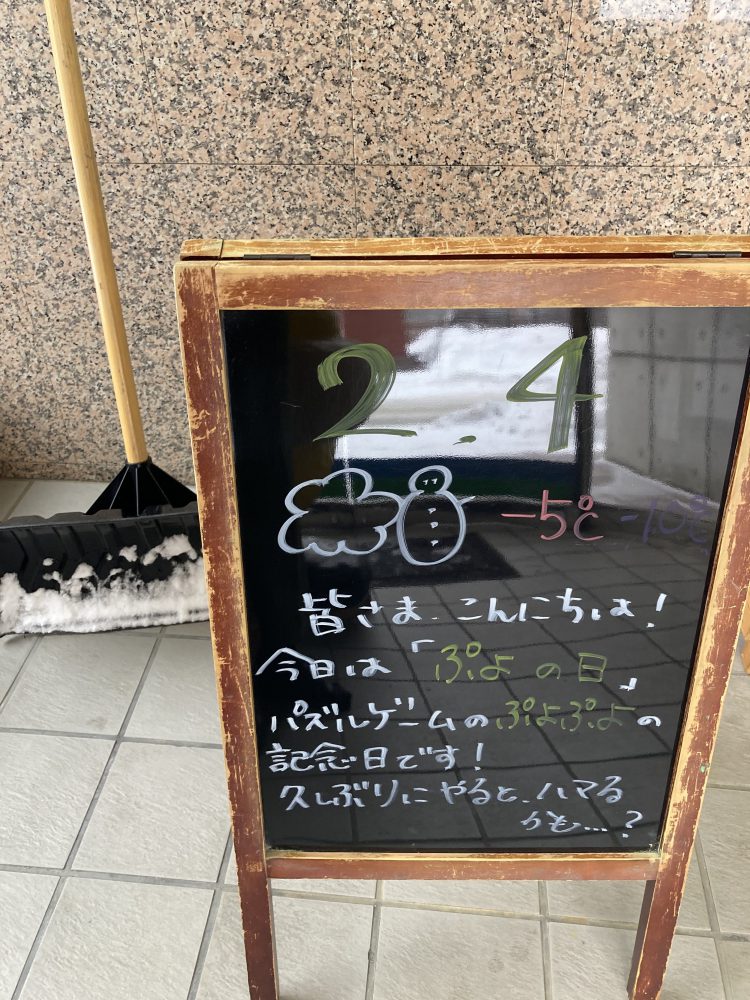 2.4
-5℃ -10℃
皆さま、こんにちは!
今日は「ぷよの日」
パズルゲームのぷよぷよの
記念日です!
久しぶりにやると、ハマる
かも…?